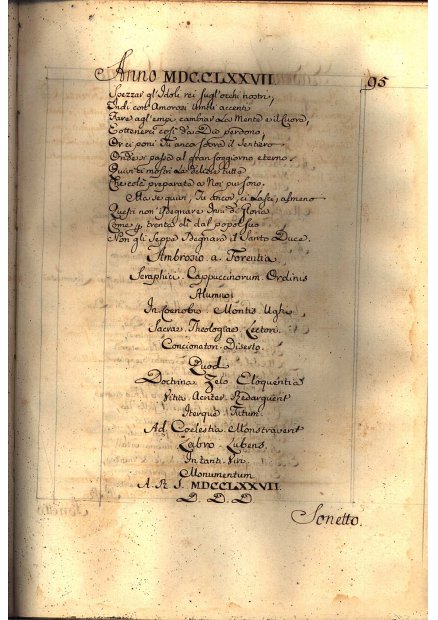 Anno MDCCLXXVII. 95
Spezzar gl'Idoli rei sugl'occhi nostri,
Indi con Amorosi Umili accenti
Fare agl'empi cambiar la Mente e il Cuore,
E ottenere così da Dio perdono,
Or ci poni Tu ancora il Sentiero
Onde si passa al gran soggiorno eterno.
Quivi ci mostri le delizie tutte
Che colà preparate a Noi
Ma se qui, Tu ancor, ci lasci, almeno
Questi non isdegnare Inni di Gloria
Come trenta dì dal popol suo
Non gli Seppe Isdegnare il Santo Duce.
Ambrosio. a. Florentia
Seraphici. Cappuccinorum. Ordinis
Alumno
In Coenobio. Montis. Ughi
Sacrae. Theologiae. Lectori
Concionatori. Diserto.
Quod
Doctrina Zelo Eloquentia
Vitia Acriter Redarguerit
Iterque Tutum
Ad. Coelestia. Monstraverit
Labro. Lubens
Intanti. Viri
Monumentum
A. R. S. MDCCLXXVII
D. D. D
Sonetto.